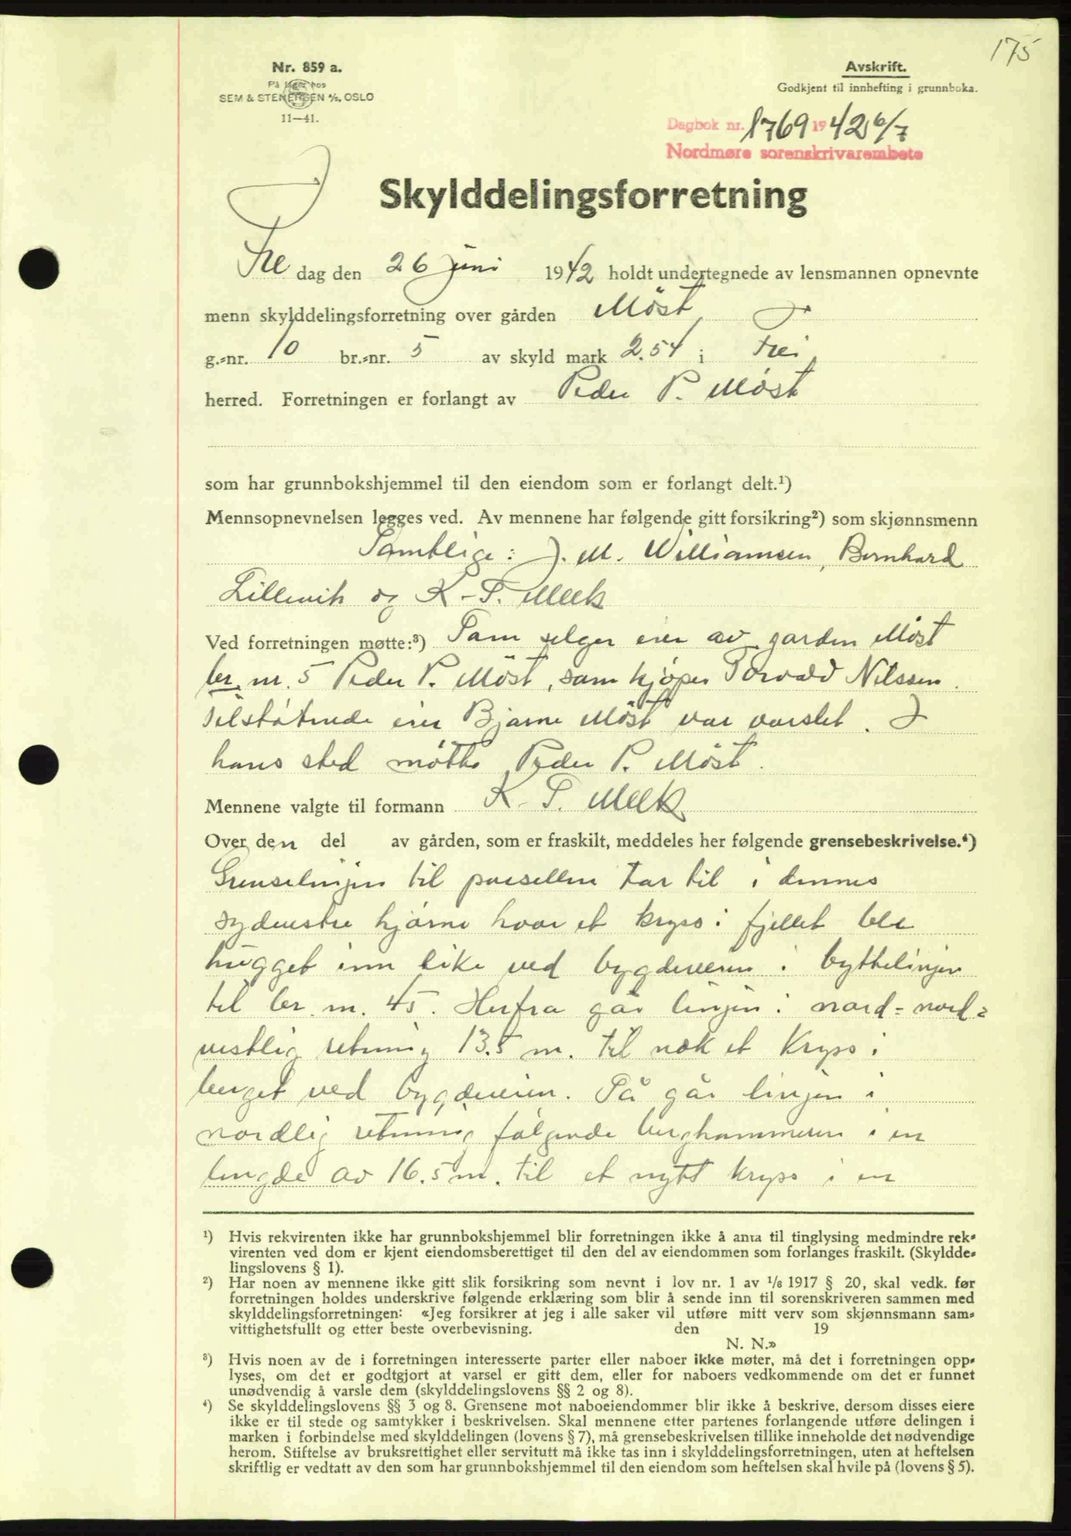 175
Nr. 859 a.
På lager hos
SEM & STENERSEN A/S, OSLO
11—41.
Avskrift.
Godkjent til innhefting i grunnboka.
Dagbok nr. 1769 1942 6/7
Nordmøre sorenskrivarembete
Skylddelingsforretning
Fre dag den 26 juni 1942 holdt undertegnede av lensmannen opnevnte
menn skylddelingsforretning over gården Möst
g.-nr. 10 br.-nr. 5 av skyld mark 2.54 i Frei
herred. Forretningen er forlangt av Peder P. Möst
som har grunnbokshjemmel til den eiendom som er forlangt delt.¹)
Mennsopnevnelsen legges ved. Av mennene har følgende gitt forsikring²) som skjønnsmenn
Samtlige: J. M. Williamsen, Bernhard
Lillevik og K. T. Meek
Ved forretningen møtte:³) Som selger eier av garden Möst
br. nr. 5 Peder P. Möst, som kjöper Torvald Nilssen.
Tilstötende eier Bjarne Möst var varslet. I
hans sted mötte Peder P. Möst.
Mennene valgte til formann K. T. Meek
Over den del av gården, som er fraskilt, meddeles her følgende grensebeskrivelse.⁴)
Grenselinjen til parsellen tar til i dennes
sydvestre hjörne hvor et kryss i fjellet ble
hugget inn like ved bygdeveien i byttelinjen
til br. nr. 45. Herfra går linjen i nord-nord-
vestlig retning 13.5 m. til nok et kryss i
berget ved bygdeveien. Så går linjen i
nordlig retning fölgende berghammeren i en
lengde av 16.5 m. til et nytt kryss i en
¹) Hvis rekvirenten ikke har grunnbokshjemmel blir forretningen ikke å anta til tinglysing medmindre rek-
virenten ved dom er kjent eiendomsberettiget til den del av eiendommen som forlanges fraskilt. (Skyldde-
lingslovens § 1).
²) Har noen av mennene ikke gitt slik forsikring som nevnt i lov nr. 1 av ¹/₈ 1917 § 20, skal vedk. før
forretningen holdes underskrive følgende erklæring som blir å sende inn til sorenskriveren sammen med
skylddelingsforretningen: «Jeg forsikrer at jeg i alle saker vil utføre mitt verv som skjønnsmann sam-
vittighetsfullt og etter beste overbevisning. den 19
N. N.»
³) Hvis noen av de i forretningen interesserte parter eller naboer ikke møter, må det i forretningen opp-
lyses, om det er godtgjort at varsel er gitt dem, eller for naboers vedkommende om det er funnet
unødvendig å varsle dem (skylddelingslovens §§ 2 og 8).
⁴) Se skylddelingslovens §§ 3 og 8. Grensene mot naboeiendommer blir ikke å beskrive, dersom disses eiere
ikke er til stede og samtykker i beskrivelsen. Skal mennene etter partenes forlangende utføre delingen i
marken i forbindelse med skylddelingen (lovens § 7), må grensebeskrivelsen tillike inneholde det nødvendige
herom. Stiftelse av bruksrettighet eller servitutt må ikke tas inn i skylddelingsforretningen, uten at heftelsen
skriftlig er vedtatt av den som har grunnbokshjemmel til den eiendom som heftelsen skal hvile på (lovens § 5).